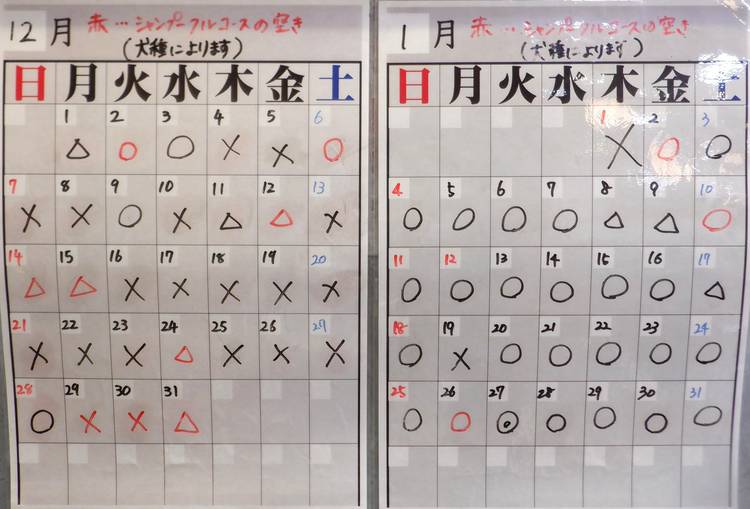 12月 赤…シャンプーフルコースの空き
(犬種によります)
日 月 火 水 木 金 土
1 2 3 4 5 6
△ ○ ○ × × ○
7 8 9 10 11 12 13
× × ○ × △ △ ×
14 15 16 17 18 19 20
△ △ × × × × ×
21 22 23 24 25 26 27
× × × △ × × ×
28 29 30 31
○ × × △
1月 赤…シャンプーフルコースの空き
(犬種によります)
日 月 火 水 木 金 土
1 2 3
× ○ ○
4 5 6 7 8 9 10
○ ○ ○ ○ △ △ ○
11 12 13 14 15 16 17
○ ○ ○ ○ ○ ○ △
18 19 20 21 22 23 24
○ × ○ ○ ○ ○ ○
25 26 27 28 29 30 31
○ ○ ◎ ○ ○ ○ ○